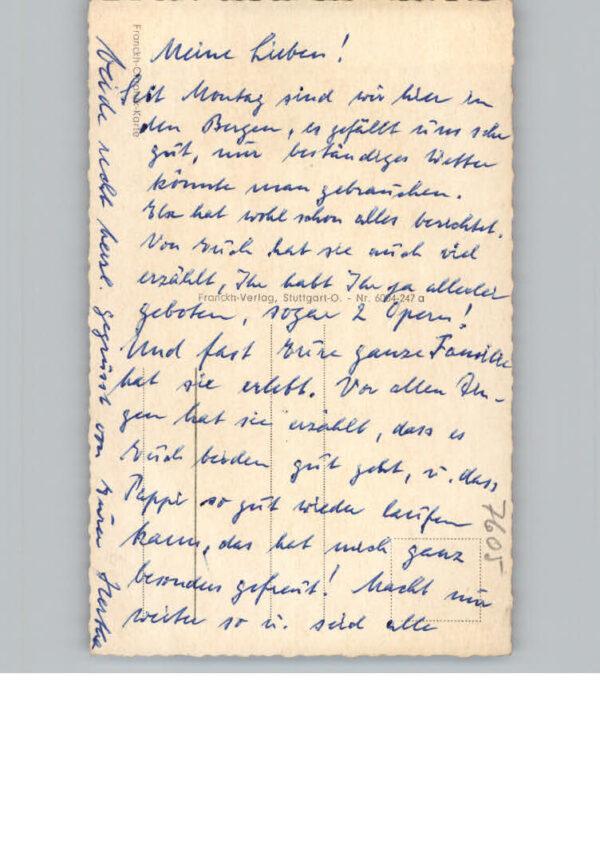 Meine Lieben!
Seit Montag sind wir hier in
den Bergen, es gefällt uns sehr
gut, nur beständiges Wetter
könnte man gebrauchen.
Else hat wohl schon alles berichtet.
Von Euch hat sie auch viel
erzählt, Ihr habt Ihr ja allerlei
geboten, sogar 2 Opern!
Und fast Eure ganze Familie
hat sie erlebt. Vor allen Din-
gen hat sie erzählt, dass es
Euch beiden gut geht, u. dass
Pappi so gut wieder laufen
kann, das hat mich ganz
besonders gefreut! Macht nur
weiter so u. seid alle
beide recht herzl. gegrüsst von Eurer Hertha
Franckh-Karte
Franckh-Verlag, Stuttgart-O. - Nr. 6004-247 a
7605